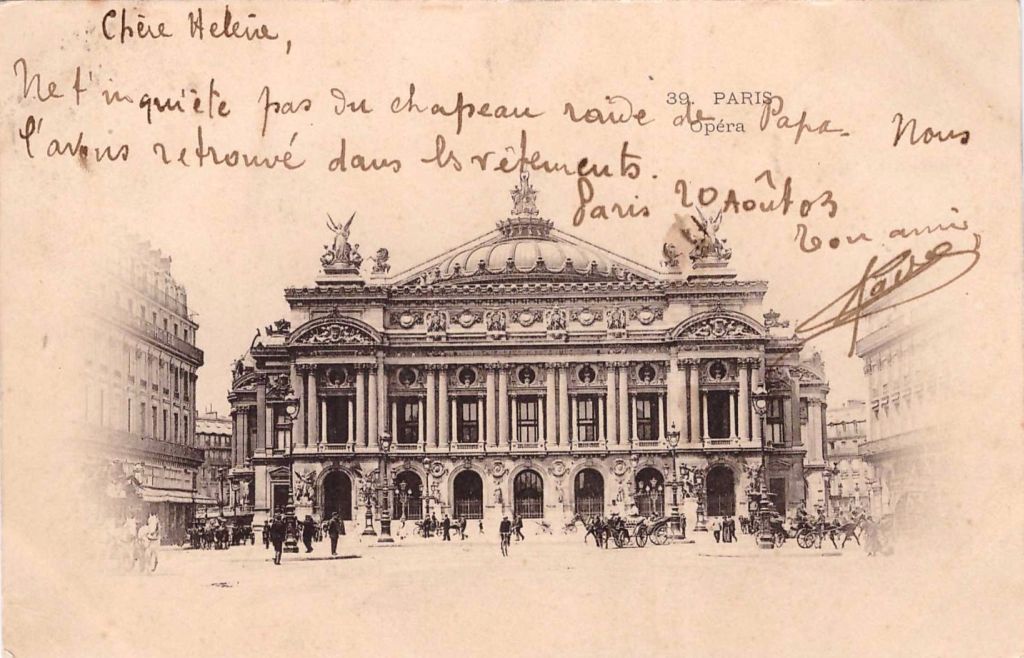 Chère Helène,
39. PARIS
Opéra
Ne t'inquiète pas du chapeau raide de Papa. Nous
l'avons retrouvé dans les vêtements.
Paris 20 Août 03
Ton ami,